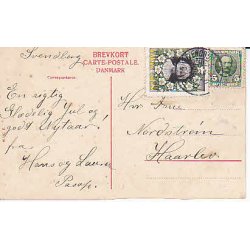 Svendborg
BREVKORT
CARTE-POSTALE.
DANMARK
Correspondance.
En rigtig
Glædelig Jul og
godt Nytaar.
fra
Hans og
Hr
Nordstrøm
Haarlev.
5